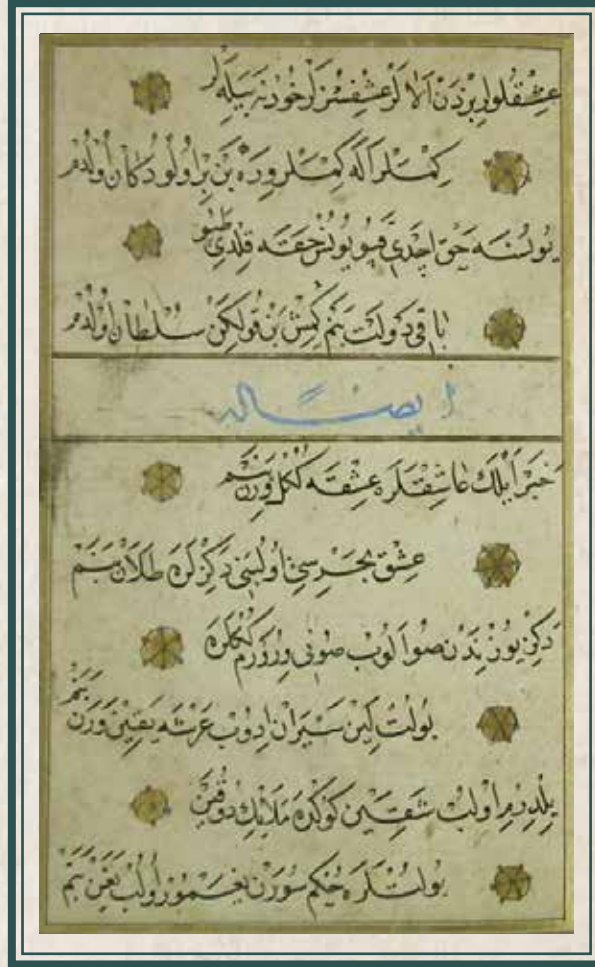 عِشْقْلُولَرْ بِزْدَنْ اَلَا لَرْ عِشْقْسُزْلَرْ خُودْ نَه بِيلَه لَرْ
كِمْسَلَرْ اَلَه كِمْسَلَرْ وِرَه بَنْ بِرْ اُولُو دُكَّانْ اُولْدُمْ
يُونُسَه حَقْ اَچْدِي قَپُو يُونُسْ حَقَّه قِلْدِي طَپُو
بَاقِي دَوْلَتْ بَنُمْ كِمِشْ بَنْ قُولِكَنْ سُلْطَانْ اُولْدُمْ
ايضًا له
خَبَرْ اَيْلَكْ عَاشِقْلَرَه عِشْقَه كُكُلْ وِرَنْ بَنَمْ
عِشْقْ بَحْرِسِي اُولُبَنِي دَكِزْلَرَه طَلَانْ بَنَمْ
دَكِزْ يُوزِنْدَنْ صُو اَلُوبْ صُونِي وِرُورَمْ كُكْلَرَه
بُولُتْلَيِنْ سَيْرَانْ اِدُوبْ عَرْشَه يَقِينْ وَرَنْ بَنَمْ
يِلْدِرِمْ اُولُبْ شَقِيَنْ كُوكْدَه مَلَائِكْ دُوقِيَنْ
بُولُتْلَرَه حُكْمْ سُورَنْ يَغْمُورْ اُولُبْ يَغَنْ بَنَمْ